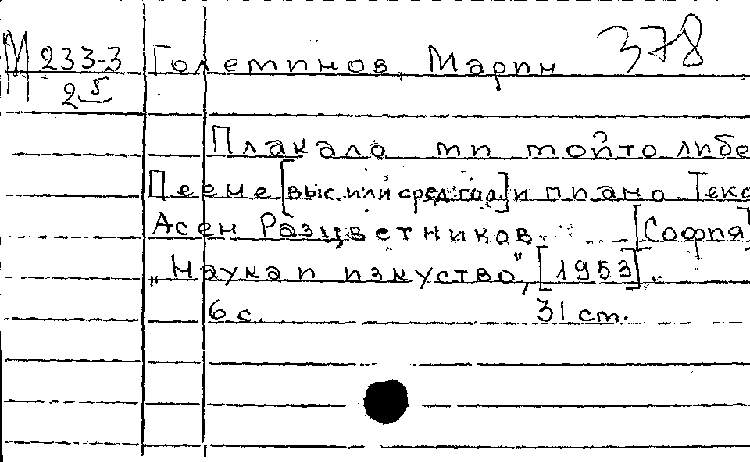 М 233-3 Големинов, Марин 378
25
Плакало ми мойто либе
Пеене [выс. или сред. гол.] и пиано Текс
Асен Разцветников. [София]
„Наука и изкуство", [1953].
6 с. 31 ст.